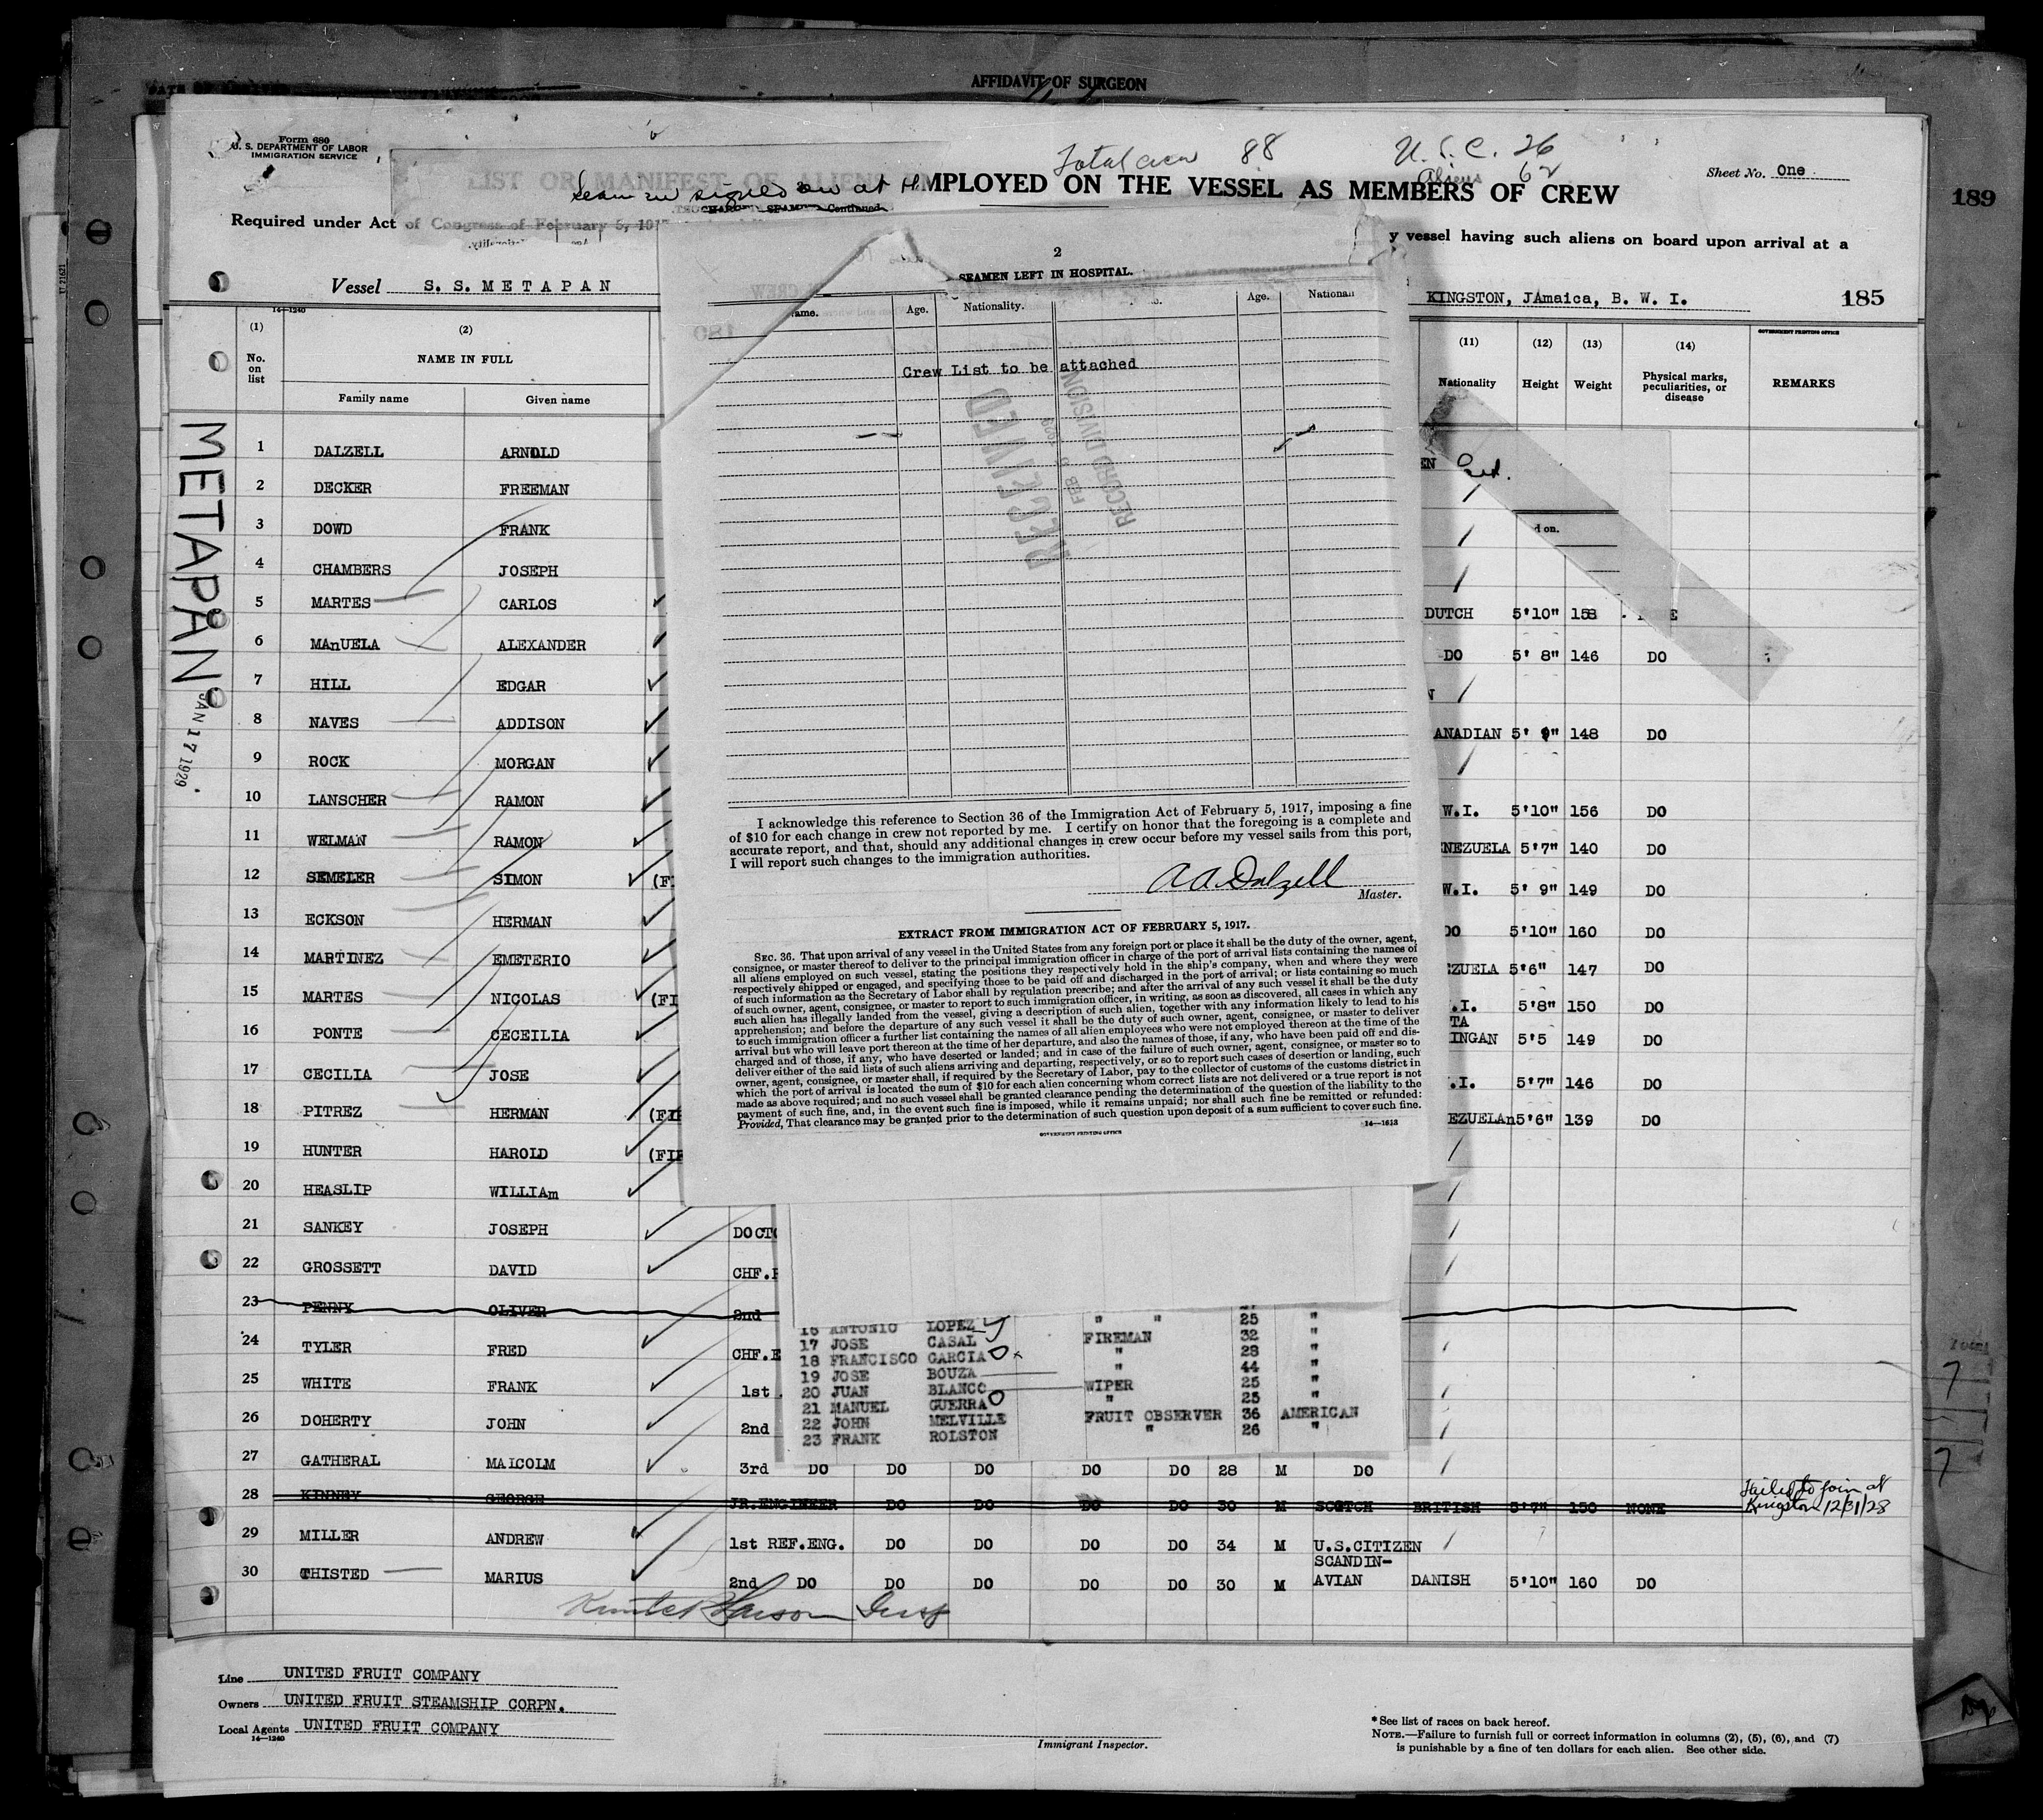 AFFIDAVIT OF SURGEON
Form 680
U. S. DEPARTMENT OF LABOR
IMMIGRATION SERVICE
Total crew 88
U.S.C. 26
Aliens 62
Sheet No. One
189
LIST OR MANIFEST OF ALIENS EMPLOYED ON THE VESSEL AS MEMBERS OF CREW
Seamen signed on at
Continued
Required under Act of Congress of February 5, 191
y vessel having such aliens on board upon arrival at a
Vessel S. S. METAPAN
KINGSTON, JAmaica, B. W. I.
185
14—1240
GOVERNMENT PRINTING OFFICE
(1) (2) (11) (12) (13) (14)
No. on list NAME IN FULL Nationality Height Weight Physical marks, peculiarities, or disease REMARKS
Family name Given name
METAPAN
JAN 17 1929
1 DALZELL ARNOLD
2 DECKER FREEMAN
3 DOWD FRANK
4 CHAMBERS JOSEPH
5 MARTES CARLOS DUTCH 5'10" 158
6 MAnUELA ALEXANDER DO 5' 8" 146 DO
7 HILL EDGAR
8 NAVES ADDISON ANADIAN 5' 9" 148 DO
9 ROCK MORGAN
10 LANSCHER RAMON W.I. 5'10" 156 DO
11 WELMAN RAMON NEZUELA 5'7" 140 DO
12 SEMELER SIMON (FI W.I. 5' 9" 149 DO
13 ECKSON HERMAN DO 5'10" 160 DO
14 MARTINEZ EMETERIO EZUELA 5'6" 147 DO
15 MARTES NICOLAS (FI .I. 5'8" 150 DO
16 PONTE CECEILIA TA INGAN 5'5 149 DO
17 CECILIA JOSE .I. 5'7" 146 DO
18 PITREZ HERMAN (FIR EZUELAn 5'6" 139 DO
19 HUNTER HAROLD (FIR
20 HEASLIP WILLIAm
21 SANKEY JOSEPH DOCTO
22 GROSSETT DAVID CHF.
23 PENNY OLIVER 2nd
24 TYLER FRED CHF.E
25 WHITE FRANK 1st
26 DOHERTY JOHN 2nd
27 GATHERAL MALCOLM 3rd DO DO DO DO DO 28 M DO
28 KINNEY GEORGE JR.ENGINEER DO DO DO DO 30 M SCOTCH BRITISH 5'7" 150 NONE Failed to join at Kingston 12/31/28
29 MILLER ANDREW 1st REF.ENG. DO DO DO DO 34 M U.S.CITIZEN
30 THISTED MARIUS 2nd DO DO DO DO DO 30 M SCANDIN-AVIAN DANISH 5'10" 160 DO
2
SEAMEN LEFT IN HOSPITAL.
ame. Age. Nationality. Age. National
Crew List to be attached
RECEIVED
FEB 1929
RECORD DIVISION
d on.
I acknowledge this reference to Section 36 of the Immigration Act of February 5, 1917, imposing a fine
of $10 for each change in crew not reported by me. I certify on honor that the foregoing is a complete and
accurate report, and that, should any additional changes in crew occur before my vessel sails from this port,
I will report such changes to the immigration authorities.
A A Dalzell
Master.
EXTRACT FROM IMMIGRATION ACT OF FEBRUARY 5, 1917.
SEC. 36. That upon arrival of any vessel in the United States from any foreign port or place it shall be the duty of the owner, agent,
consignee, or master thereof to deliver to the principal immigration officer in charge of the port of arrival lists containing the names of
all aliens employed on such vessel, stating the positions they respectively hold in the ship's company, when and where they were
respectively shipped or engaged, and specifying those to be paid off and discharged in the port of arrival; or lists containing so much
of such information as the Secretary of Labor shall by regulation prescribe; and after the arrival of any such vessel it shall be the duty
of such owner, agent, consignee, or master to report to such immigration officer, in writing, as soon as discovered, all cases in which any
such alien has illegally landed from the vessel, giving a description of such alien, together with any information likely to lead to his
apprehension; and before the departure of any such vessel it shall be the duty of such owner, agent, consignee, or master to deliver
to such immigration officer a further list containing the names of all alien employees who were not employed thereon at the time of the
arrival but who will leave port thereon at the time of her departure, and also the names of those, if any, who have been paid off and dis-
charged and of those, if any, who have deserted or landed; and in case of the failure of such owner, agent, consignee, or master so to
deliver either of the said lists of such aliens arriving and departing, respectively, or so to report such cases of desertion or landing, such
owner, agent, consignee, or master shall, if required by the Secretary of Labor, pay to the collector of customs of the customs district in
which the port of arrival is located the sum of $10 for each alien concerning whom correct lists are not delivered or a true report is not
made as above required; and no such vessel shall be granted clearance pending the determination of the question of the liability to the
payment of such fine, and, in the event such fine is imposed, while it remains unpaid; nor shall such fine be remitted or refunded:
Provided, That clearance may be granted prior to the determination of such question upon deposit of a sum sufficient to cover such fine.
GOVERNMENT PRINTING OFFICE
14—1613
16 ANTONIO LOPEZ " " 25 "
17 JOSE CASAL FIREMAN 32 "
18 FRANCISCO GARCIA " 28 "
19 JOSE BOUZA " 44 "
20 JUAN BLANCO WIPER 25 "
21 MANUEL GUERRA " 25 "
22 JOHN MELVILLE FRUIT OBSERVER 36 AMERICAN
23 FRANK ROLSTON " 26 "
Line UNITED FRUIT COMPANY
Owners UNITED FRUIT STEAMSHIP CORPN.
Local Agents UNITED FRUIT COMPANY
14—1240
Immigrant Inspector.
*See list of races on back hereof.
NOTE.—Failure to furnish full or correct information in columns (2), (5), (6), and (7)
is punishable by a fine of ten dollars for each alien. See other side.